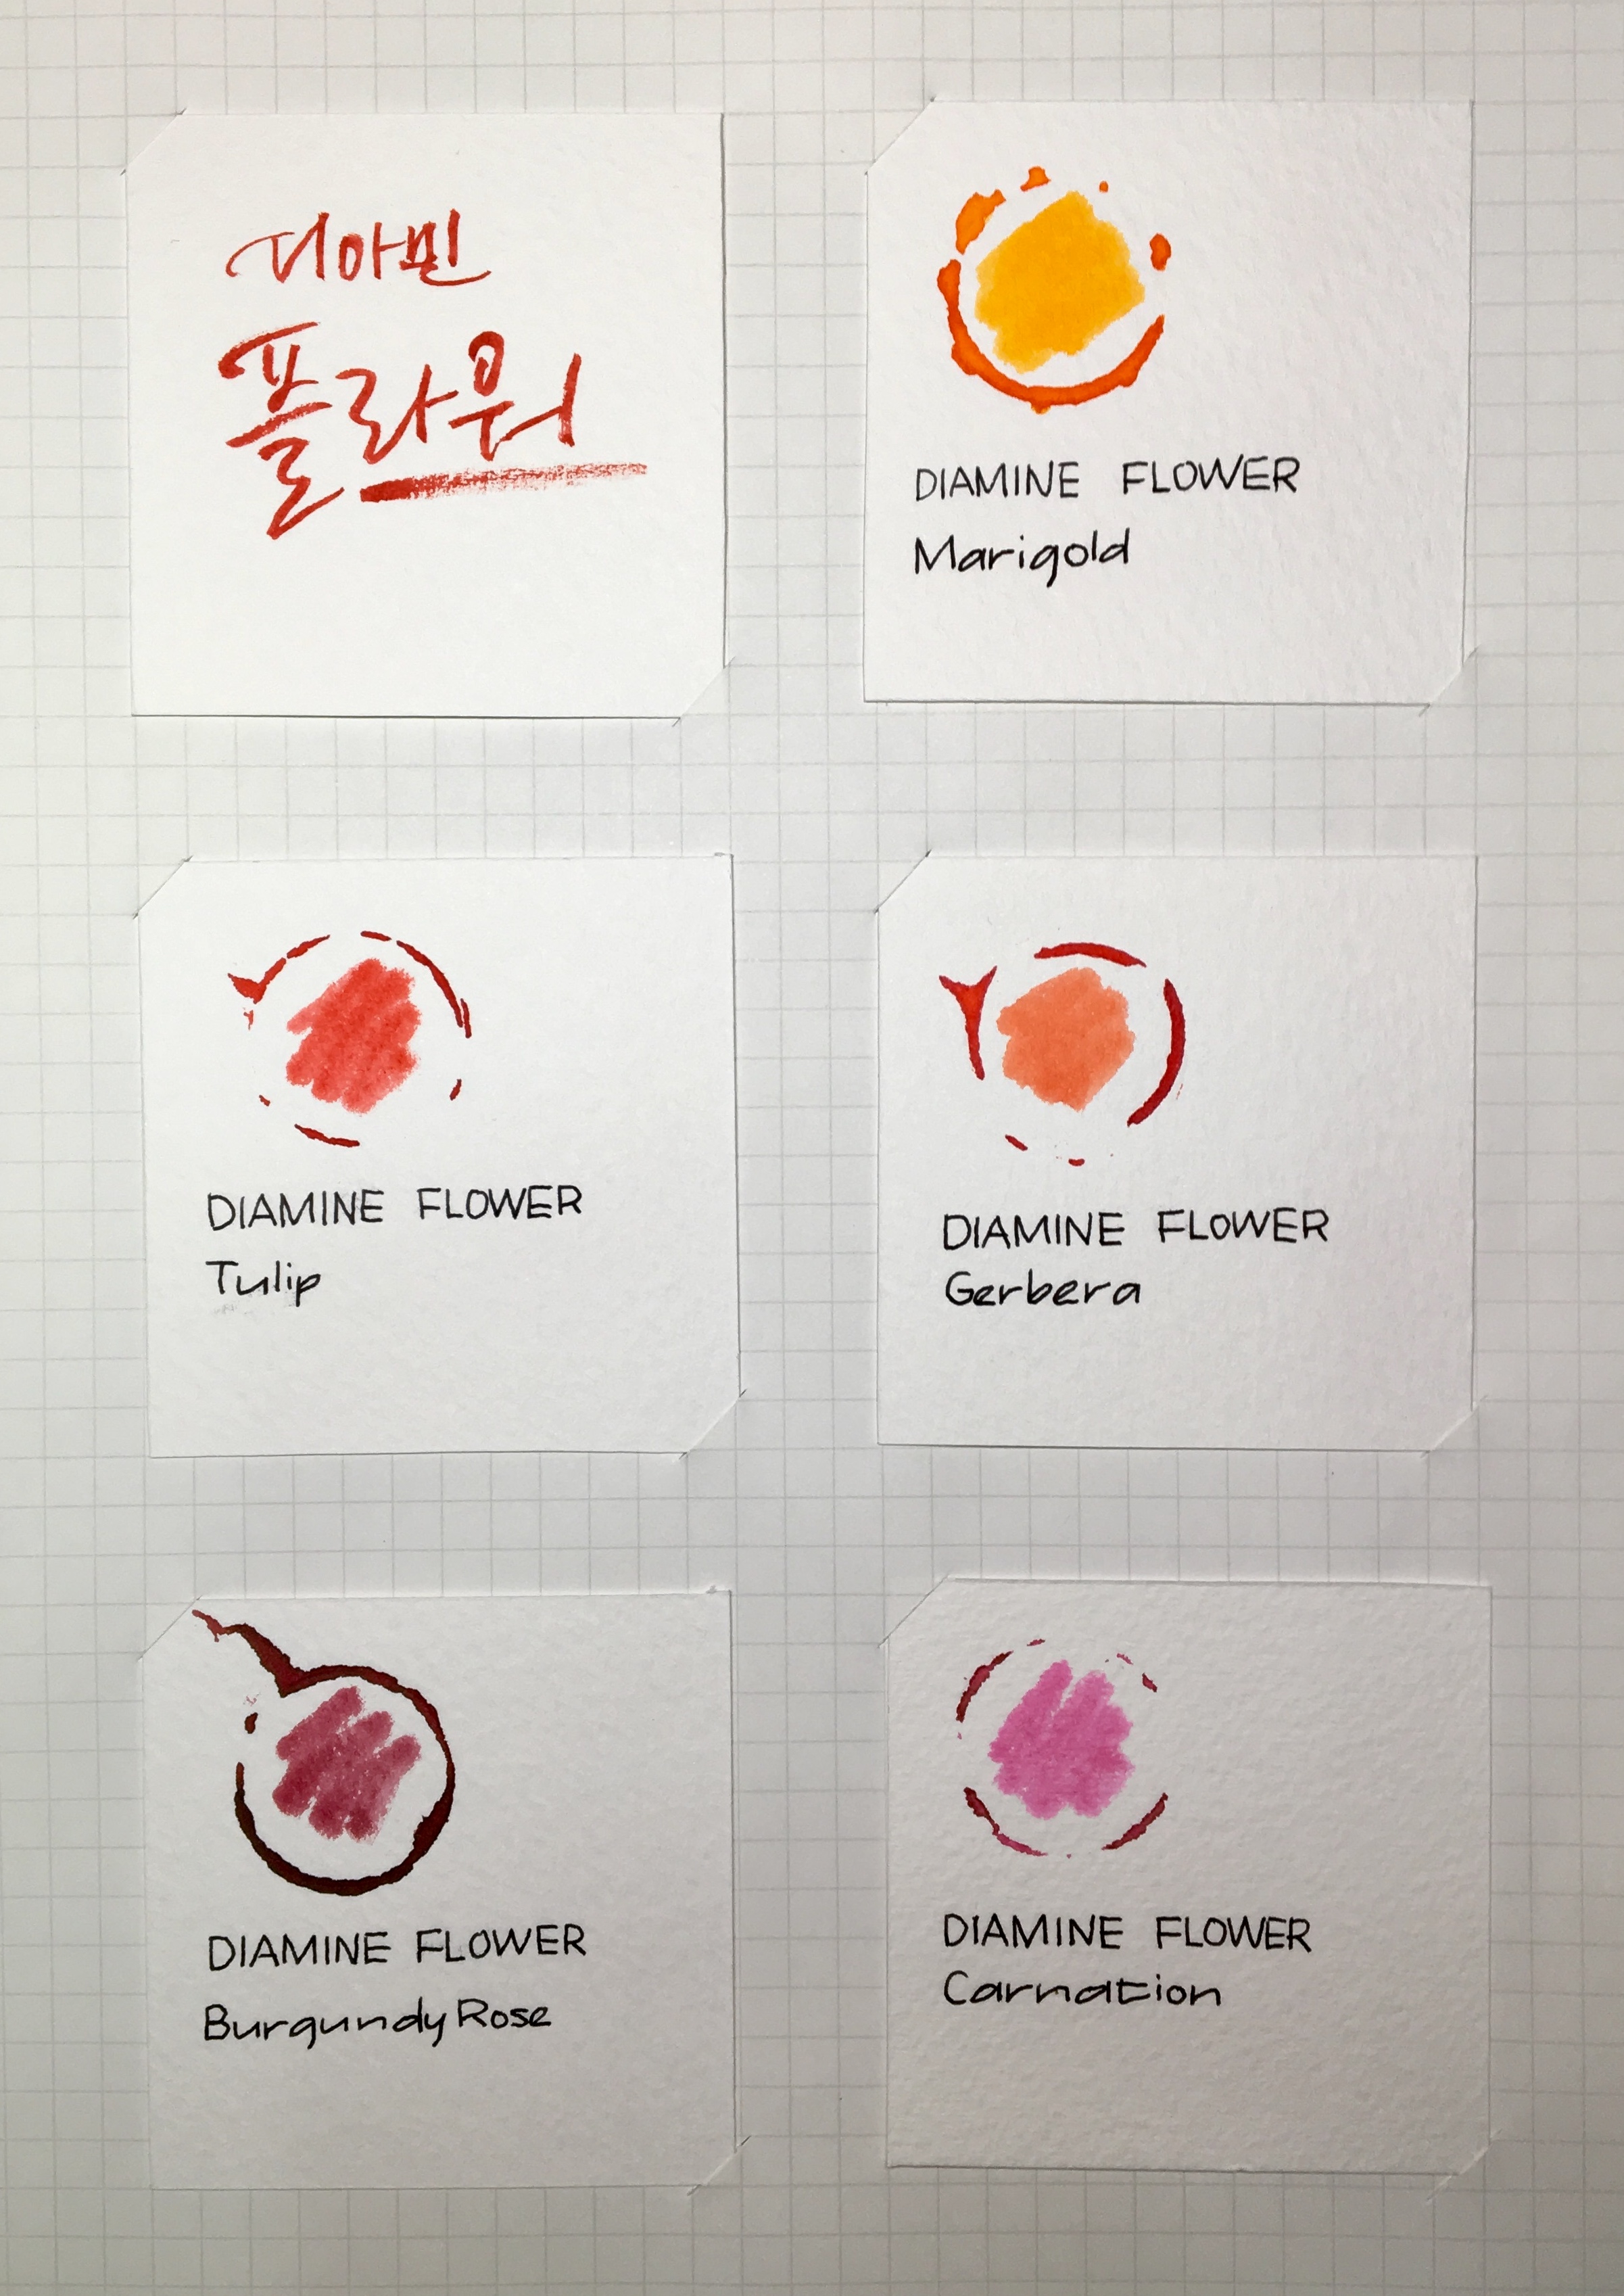 디아민
플라워
DIAMINE FLOWER
Marigold
DIAMINE FLOWER
Tulip
DIAMINE FLOWER
Gerbera
DIAMINE FLOWER
Burgundy Rose
DIAMINE FLOWER
Carnation